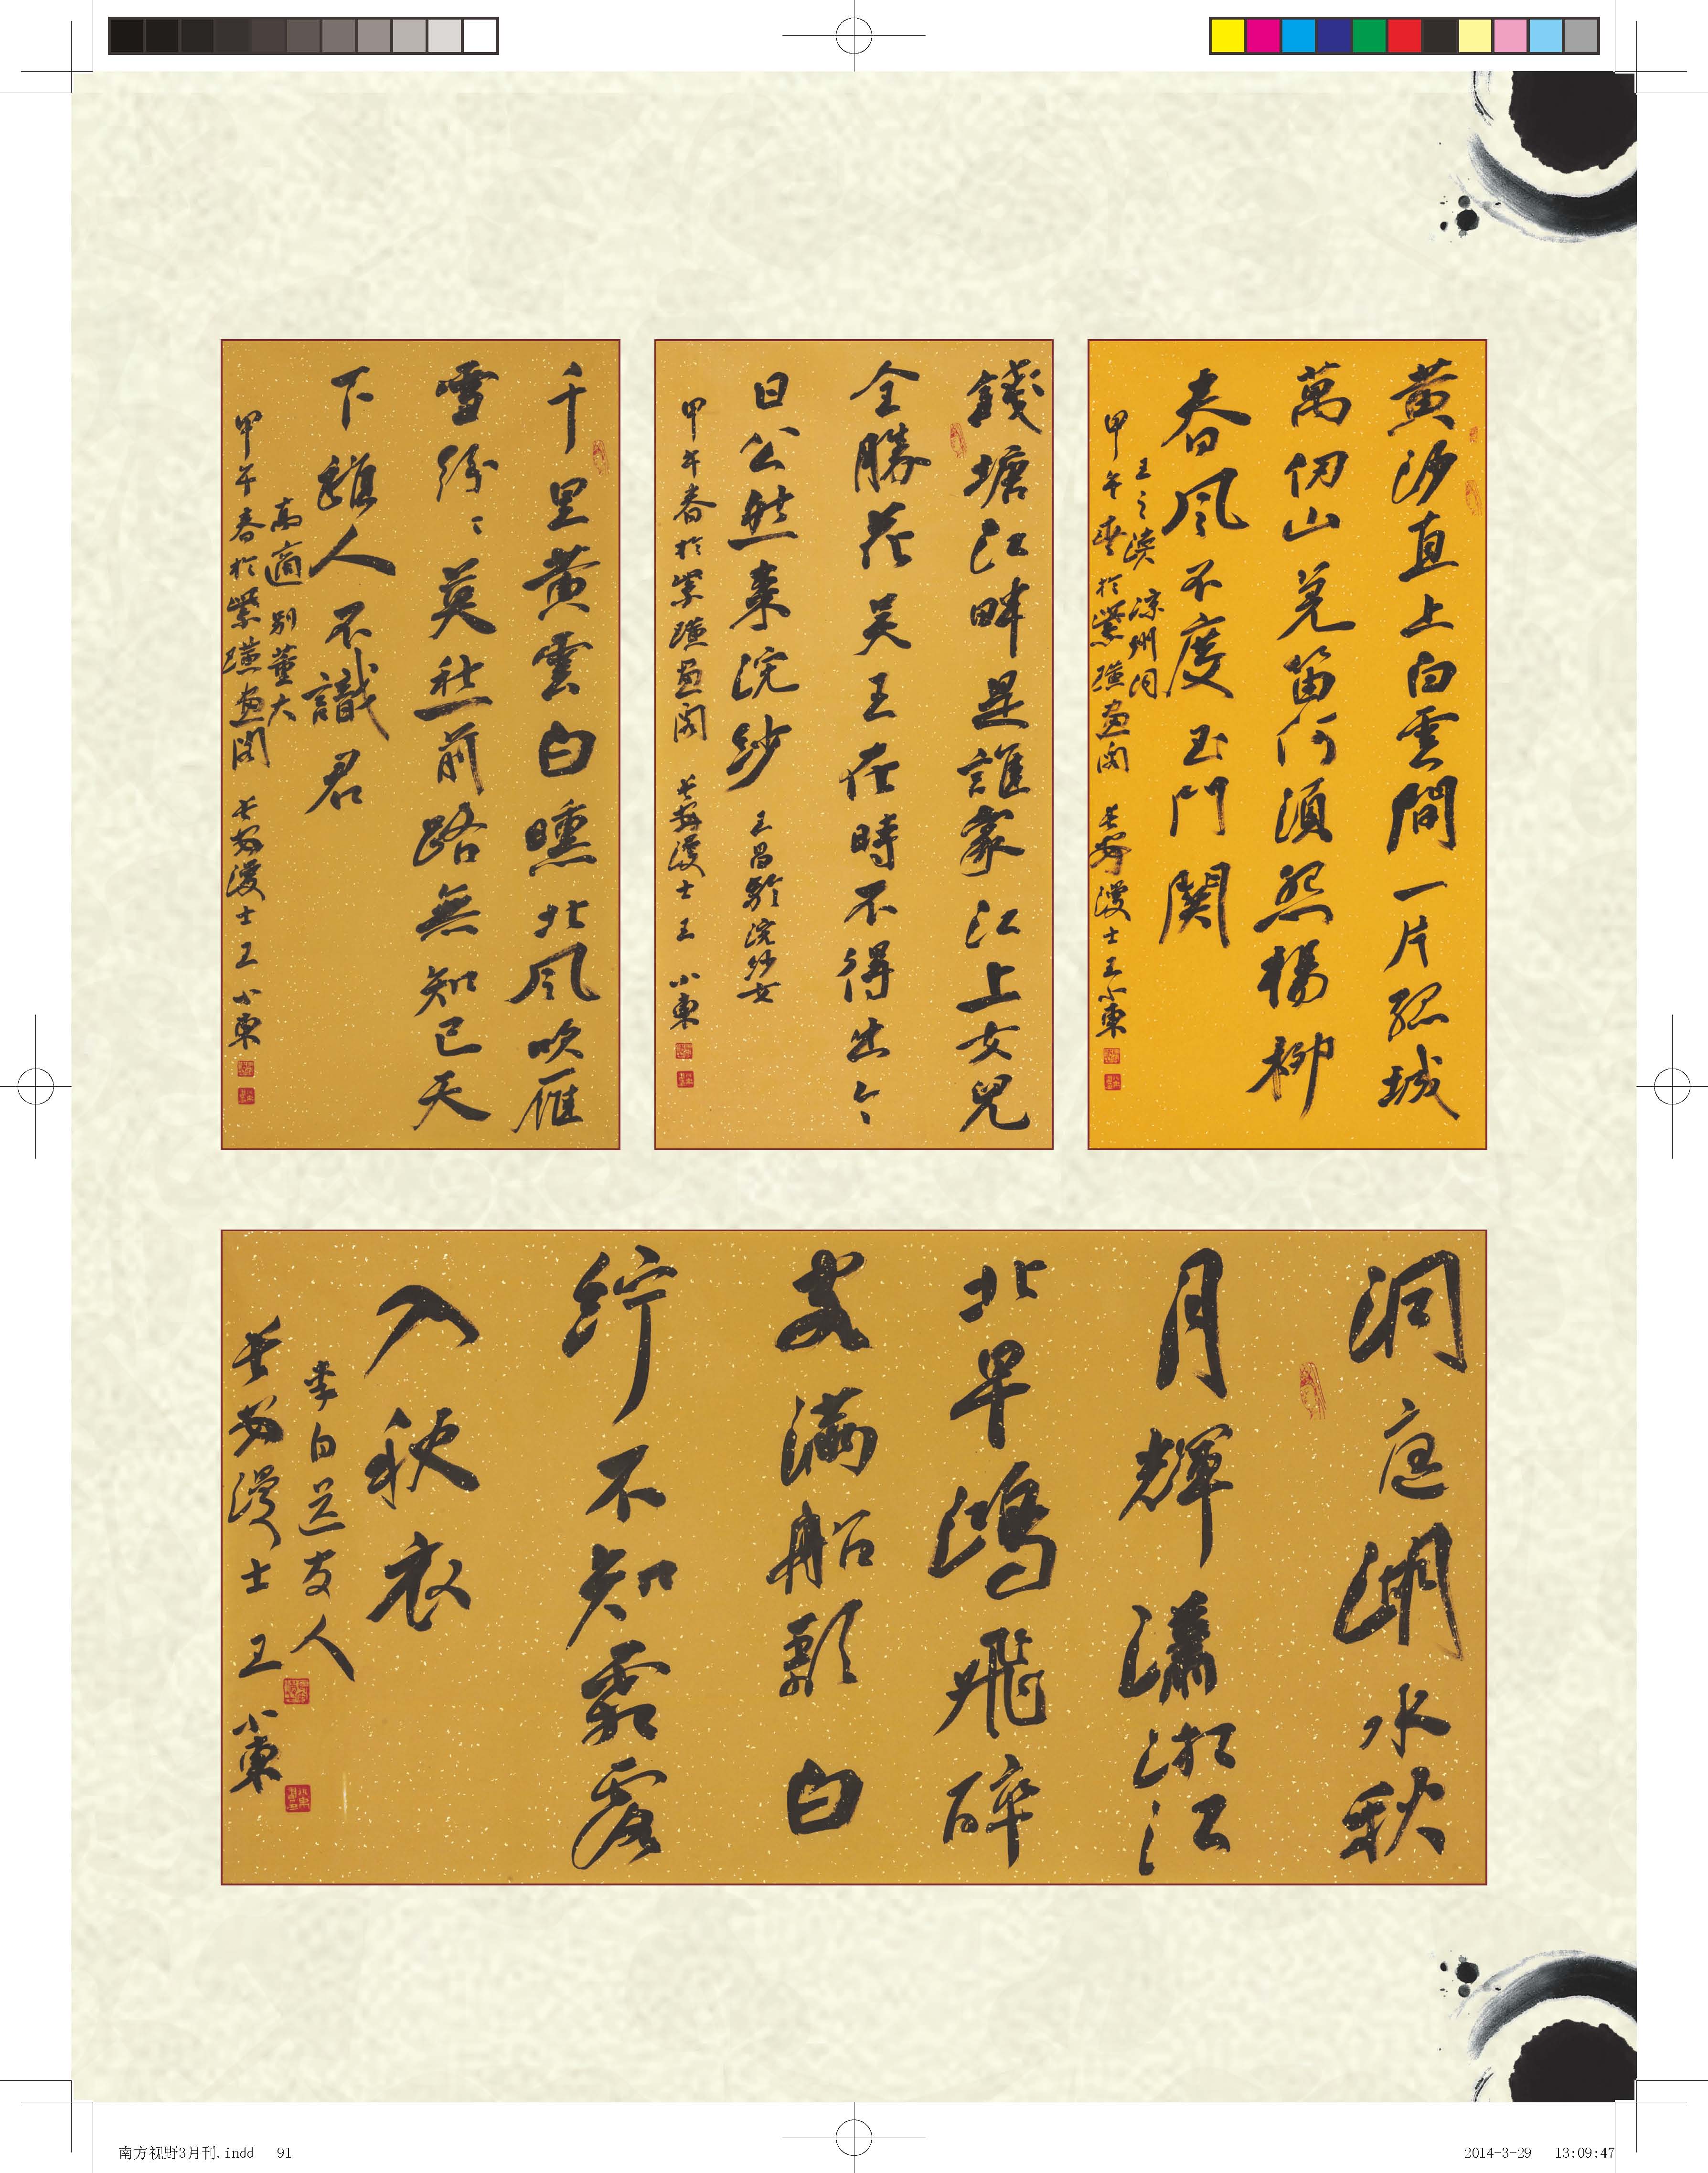 黄沙直上白雲間一片孤城
萬仞山羌笛何須怨楊柳
春風不度玉門関
王之渙凉州词
甲午春於紫璜画阁 長安漫士王小東
錢塘江畔是誰家江上女兒
全勝花吴王在時不得出今
日公然来浣紗 王昌齡浣紗女
甲午春於紫璜画阁 長安漫士王小東
千里黄雲白曛北風吹雁
雪紛々莫愁前路無知己天
下誰人不識君
高適别董大
甲午春於紫璜画阁 長安漫士王小東
洞庭湖水秋
月輝瀟湘江
北早鴻飛醉
客滿船歌白
紵不知霜露
入秋衣
李白送友人
長安漫士王小東
南方视野3月刊.indd 91
2014-3-29 13:09:47